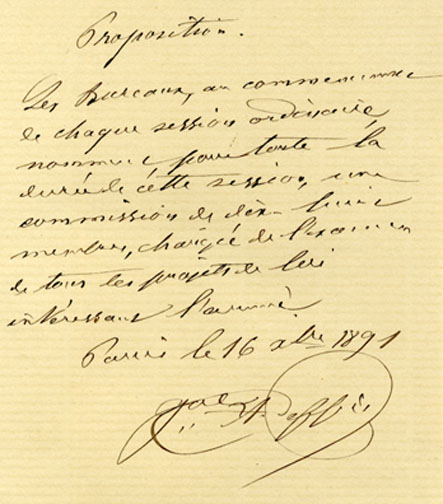 Proposition.
Les Bureaux, au commencement
de chaque session ordinaire,
nomment pour toute la
durée de cette session, une
commission de dix-huit
membres, chargée de l'examen
de tous les projets de loi
intéressant l'armée
Paris le 16 xbre 1891